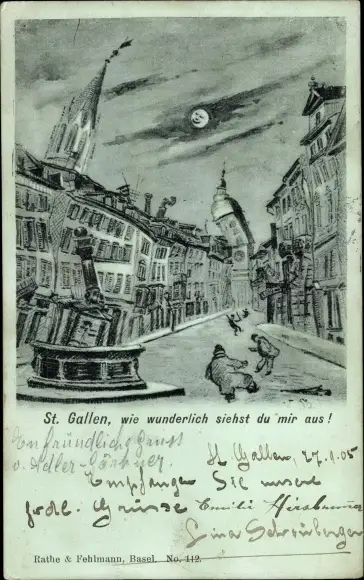 St. Gallen, wie wunderlich siehst du mir aus!
Ein freundliche Gruss
v. Adler-
St. Gallen, 27.1.05
Empfangen Sie unsere
frdl. Grüsse Emilie
Lina
Rathe & Fehlmann, Basel. No. 112.